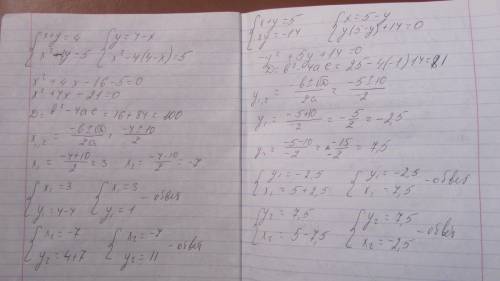 {x+y=4 {y=4-x
{x²-4y=5 {x²-4(4-x)=5
x²+4x-16-5=0
x²+4x-21=0
D=b²-4ac=16+84=100
x₁,₂=(-b±√D)/2a=(-4±10)/2
x₁=(-4+10)/2=3 x₂=(-4-10)/2=-7
{x₁=3 {x₁=3
{y₁=4-4 {y₁=1 -ответ
{x₂=-7 {x₂=-7
{y₂=4+7 {y₂=11 -ответ
{x+y=5 {x=5-y
{xy=-14 {y(5-y)+14=0
-y²+5y+14=0
D=b²-4ac=25-4(-1)14=81
y₁,₂=(-b±√D)/2a=(-5±10)/2
y₁=(-5+10)/-2=-5/2=-2,5
y₂=(-5-10)/-2=-15/-2=7,5
{y₁=-2,5 {y₁=-2,5
{x₁=5+2,5 {x₁=7,5 -ответ
{y₂=7,5 {y₂=7,5
{x₂=5-7,5 {x₂=-2,5 -ответ